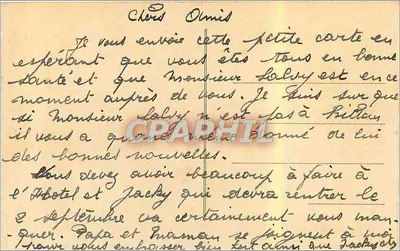 Chers Amis
Je vous envoie cette petite carte en
espérant que vous êtes tous en bonne
santé et que Monsieur Salvy est en ce
moment auprès de vous. Je suis sur que
si Monsieur Salvy n'est pas à
il vous a quand même donné de lui
des bonnes nouvelles.
CRAPHIL
Vous devez avoir beaucoup à faire à
l'Hotel et Jacky qui devra rentrer le
2 septembre va certainement vous man-
quer. Papa et Maman se joignent à moi
pour vous embrasser bien fort ainsi que Jacky